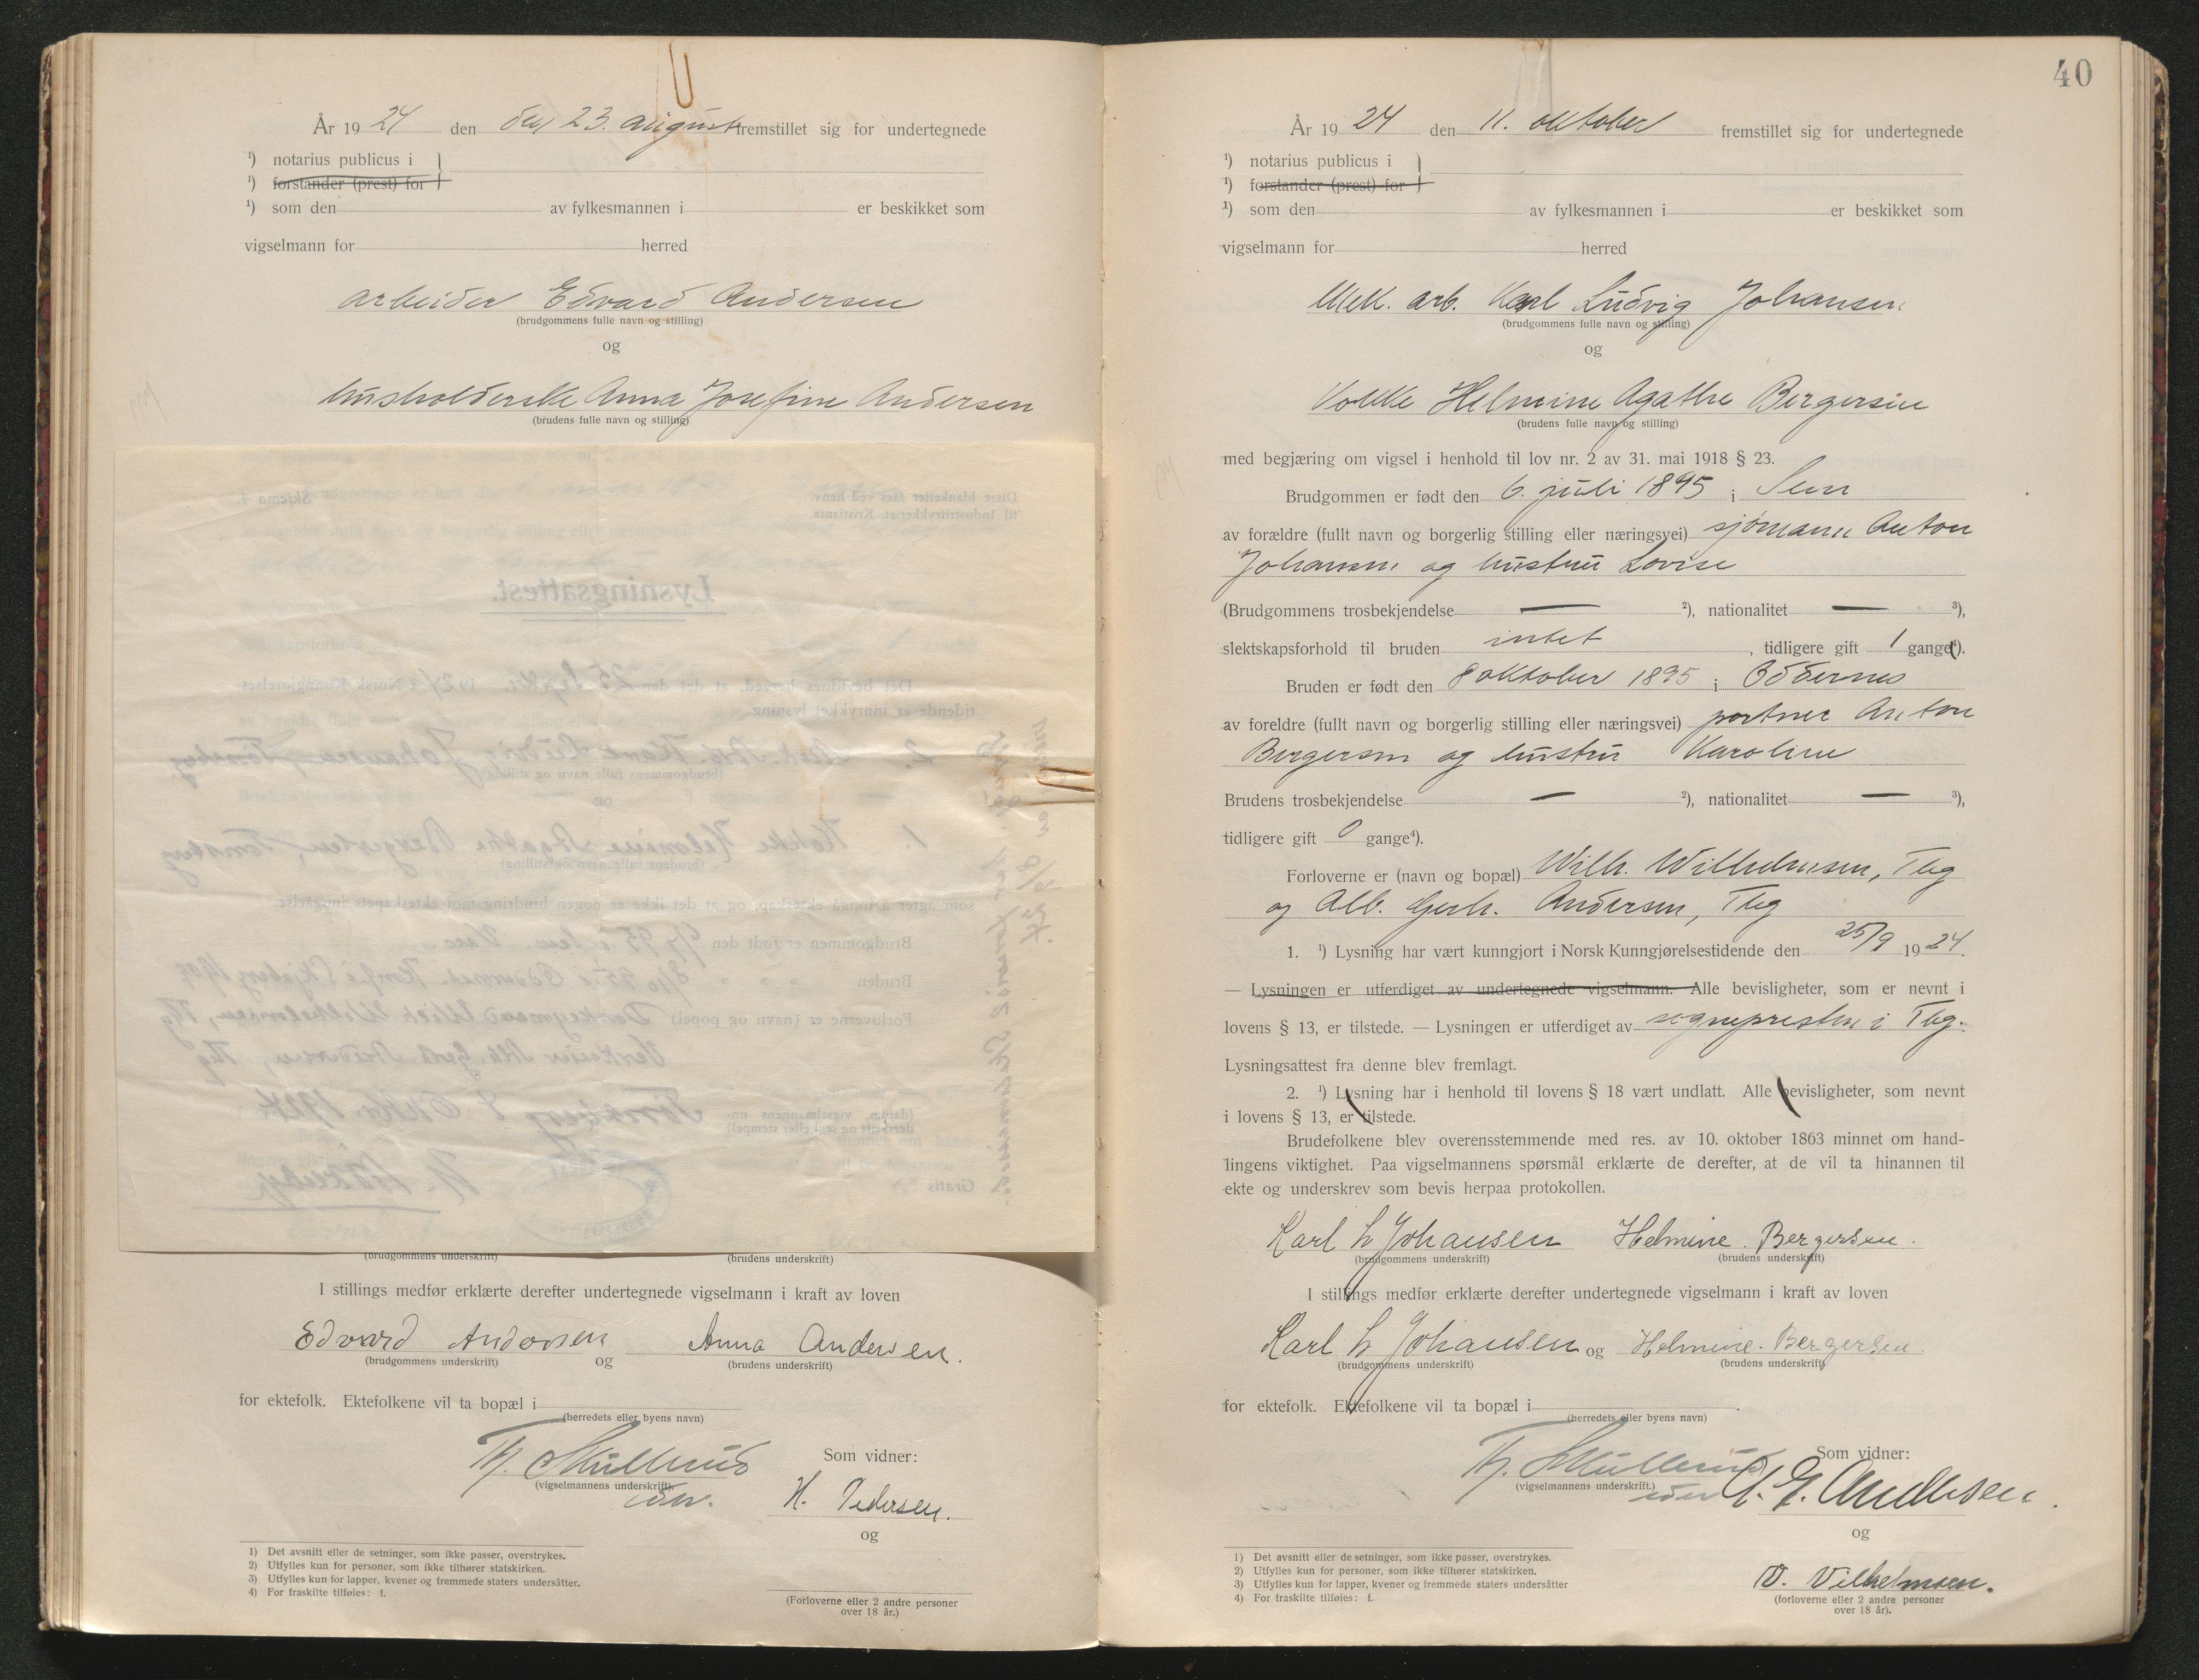 År 1924 den den 23. august fremstillet sig for undertegnede
¹) notarius publicus i }
¹) forstander (prest) for }
¹) som den av fylkesmannen i er beskikket som
vigselmann for herred
arbeider Edvard Andersen
(brudgommens fulle navn og stilling)
og
husholderske Anna Josefine Andersen
(brudens fulle navn og stilling)
Skjema 4.
Disse blanketter fåes ved henv
til Industritrykkeriet Kristiania
Lysningsattest.
Det bevidnes herved, at det den 25 Septbr. 1924 i Norsk Kunngjørelses-
tidende er innrykket lysning
2. Mek. Arb. Karl Ludvig Johansen, Tønsberg
(brudgommens fulle navn og stilling)
og
1. Kokke Helmine Agathe Bergersen, Tønsberg
(brudens fulle navn og stilling)
som agter å inngå ekteskap, og at det ikke er nogen hindring mot ekteskapets inngåelse.
Brudgommen er født den 6/7 95 i Sem.
Bruden " " " 8/10 95 i Oddernes.
Forloverne er (navn og bopel) Wilh. Wilhelmsen, Tbg
Alb. Gerh. Andersen, Tbg
(datum, vigselmannens un-
derskrift og segl eller stempel)
Tønsberg Oktbr. 1924
Gratis
(brudgommens underskrift) (brudens underskrift)
I stillings medfør erklærte derefter undertegnede vigselmann i kraft av loven
Edvard Andersen og Anna Andersen.
(brudgommens underskrift) (brudens underskrift)
for ektefolk. Ektefolkene vil ta bopæl i
(herredets eller byens navn)
Som vidner:
(vigselmannens underskrift).
H. Pedersen.
og
(Forloverne eller 2 andre personer
over 18 år.)
1) Det avsnitt eller de setninger, som ikke passer, overstrykes.
2) Utfylles kun for personer, som ikke tilhører statskirken.
3) Utfylles kun for lapper, kvener og fremmede staters undersåtter.
4) For fraskilte tilføies: f.
40
År 1924 den 11. oktober fremstillet sig for undertegnede
¹) notarius publicus i }
¹) forstander (prest) for }
¹) som den av fylkesmannen i er beskikket som
vigselmann for herred
Mek. arb. Karl Ludvig Johansen
(brudgommens fulle navn og stilling)
og
Kokke Helmine Agathe Bergersen
(brudens fulle navn og stilling)
med begjæring om vigsel i henhold til lov nr. 2 av 31. mai 1918 § 23.
Brudgommen er født den 6. juli 1895 i Sem
av forældre (fullt navn og borgerlig stilling eller næringsvei) sjømann Anton
Johansen og hustru Lovise
(Brudgommens trosbekjendelse — ²), nationalitet — ³),
slektskapsforhold til bruden intet, tidligere gift 1 gange⁴).
Bruden er født den 8 oktober 1895 i Oddernes
av foreldre (fullt navn og borgerlig stilling eller næringsvei) portner Anton
Bergersen og hustru Karoline
Brudens trosbekjendelse — ²), nationalitet — ³),
tidligere gift 0 gange⁴).
Forloverne er (navn og bopæl) Wilh. Wilhelmsen, Tbg
og Alb. Gerh. Andersen, Tbg
1. ¹) Lysning har vært kunngjort i Norsk Kunngjørelsestidende den 25/9 1924.
— Lysningen er utferdiget av undertegnede vigselmann. — Alle bevisligheter, som er nevnt i
lovens § 13, er tilstede. — Lysningen er utferdiget av sognepresten i Tbg.
Lysningsattest fra denne blev fremlagt.
2. ¹) Lysning har i henhold til lovens § 18 vært undlatt. Alle bevisligheter, som nevnt
i lovens § 13, er tilstede.
Brudefolkene blev overensstemmende med res. av 10. oktober 1863 minnet om hand-
lingens viktighet. Paa vigselmannens spørsmål erklærte de derefter, at de vil ta hinannen til
ekte og underskrev som bevis herpaa protokollen.
Karl L Johansen Helmine. Bergersen.
(brudgommens underskrift) (brudens underskrift)
I stillings medfør erklærte derefter undertegnede vigselmann i kraft av loven
Karl L Johansen og Helmine. Bergersen.
(brudgommens underskrift) (brudens underskrift)
for ektefolk. Ektefolkene vil ta bopæl i
(herredets eller byens navn)
Som vidner:
(vigselmannens underskrift.)
og
V. Vilhelmsen.
(forloverne eller 2 andre personer
over 18 år).
1) Det avsnitt eller de setninger, som ikke passer, overstrykes.
2) Utfylles kun for personer, som ikke tilhører statskirken.
3) Utfylles kun for lapper, kvener og fremmede staters undersåtter
4) For fraskilte tilføies: f.